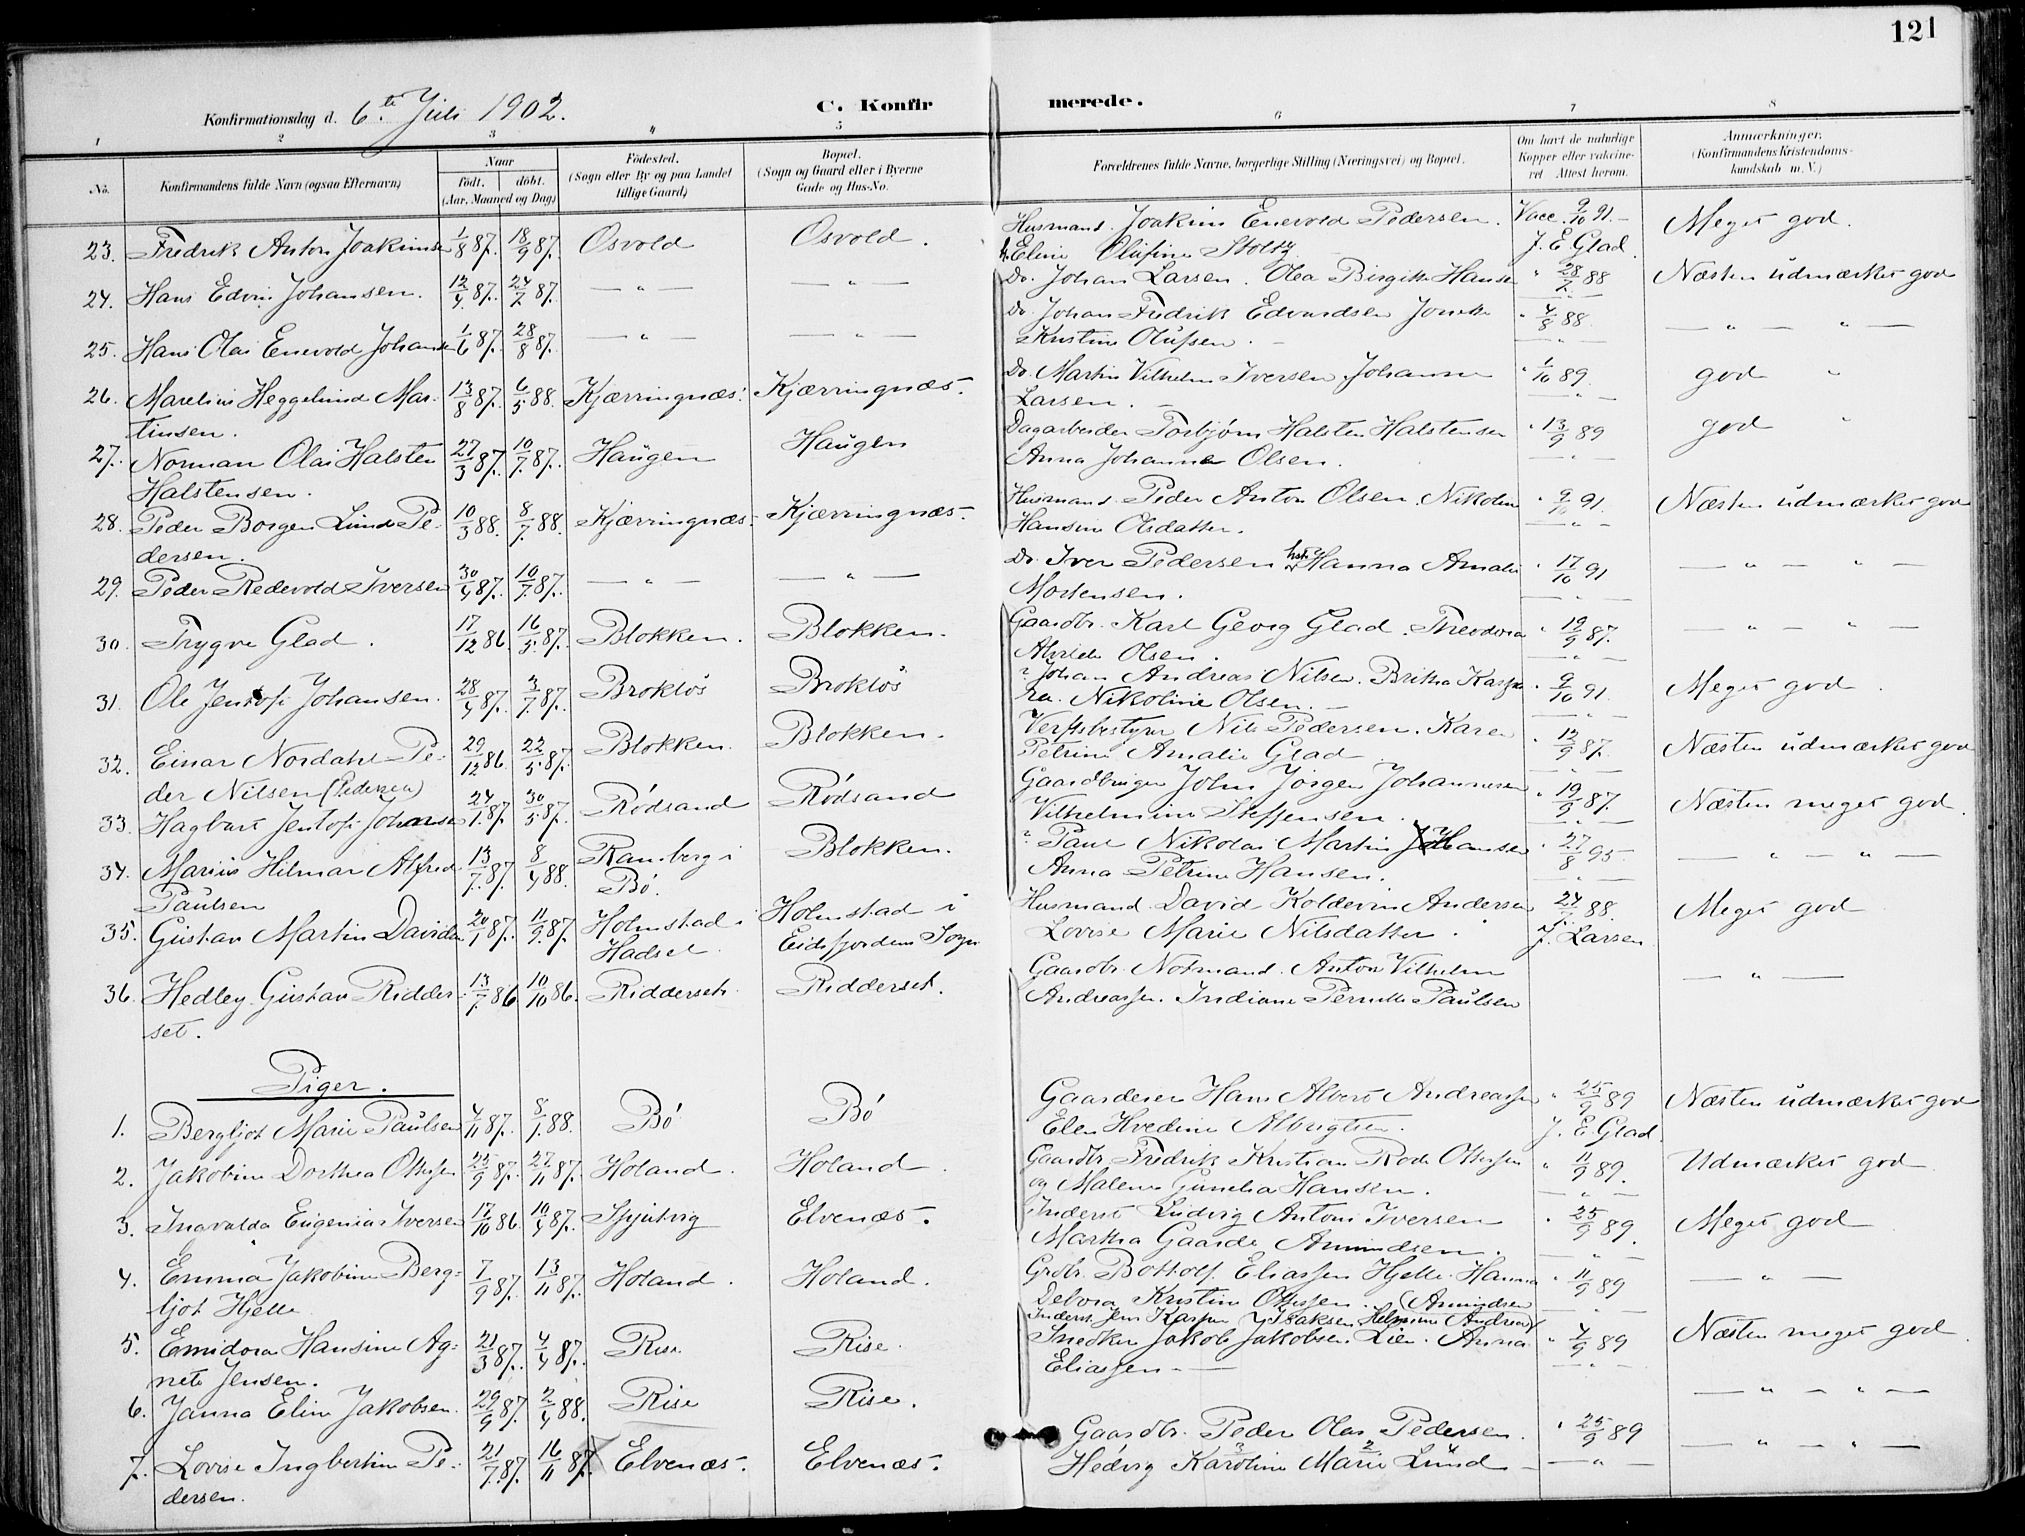 121
Konfirmationsdag d. 6te Juli 1902.
C. Konfirmerede.
1 2 3 4 5 6 7 8
No. Konfirmandens fulde Navn (ogsaa Efternavn) Naar født. døbt. (Aar, Maaned og Dag) Fødested. (Sogn eller By og paa Landet tillige Gaard) Bopæl. (Sogn og Gaard eller i Byerne Gade og Hus-No. Forældrenes fulde Navne, borgerlige Stilling (Næringsvei) og Bopæl. Om havt de naturlige Kopper eller vakcineret Attest herom. Anmærkninger. (Konfirmandens Kristendomskundskab m. V.)
23. Fredrik Anton Joakimsen 1/8 87. 18/9 87. Osvold Osvold. Husmand Joakim Enevold Pedersen. Vacc. 9/10 91. Meget god.
Eline Olufine Stoltz J. E. Glad.
24. Hans Edvin Johansen. 12/4 87. 24/7 87. — " — — " — Do. Johan Larsen. Olea Birgitte Hansen " 28/7 88 Næsten udmærket god
25. Hans Olai Enevold Johansen 1/6 87. 28/8 87. — " — — " — Do. Johan Fredrik Edvardsen " 4/8 88. — " — " —
Kristine Olufsen. — " —
26. Marelius Heggelund Mar- 13/8 87. 6/5 88. Kjærringnæs. Kjærringnæs. Do. Martin Vilhelm Iversen. Johanna " 1/10 89. god "
tinsen. Larsen. — " —
27. Norman Olai Halsten 27/3 87. 10/7 87. Haugen Haugen Dagarbeider Torbjørn Halsten Halstensen " 13/9 89 god "
Halstensen. Anna Johanna Olsen. — " —
28. Peder Borgen Lund Pe- 10/3 88. 8/7 88. Kjærringnæs. Kjærringnæs. Husmand Peder Anton Olsen. Nikoline " 9/10 91. Næsten udmærket god
dersen. Hansine Olsdatter. — " —
29. Peder Redevold Iversen 30/4 87. 10/7 87. — " — — " — Do. Iver Pedersen Hanna Amalie " 17/10 91 — " — " —
Mortensen. — " —
30. Trygve Glad. 17/12 86. 16/5 87. Blokken. Blokken. Gaardbr. Karl Georg Glad. Theodora " 19/9 87. — " — " —
Olsen. — " —
31. Ole Jentoft Johansen. 28/4 87. 3/7 87. Brokløs Brokløs " Johan Andreas Nilsen. Britha " 9/10 91. Meget god.
Nikoline Olsen. — " —
32. Einar Nordahl Pe- 29/12 86. 22/5 87. Blokken. Blokken. Verftsbestyrer Nils Pedersen. Karen " 12/9 87. Næsten udmærket god
der Nilsen (Pedersen) Petrine Amalie Glad — " —
33. Hagbart Jentoft Johansen 24/1 87. 30/5 87. Rødsand Rødsand Gaardbruger John Jørgen Johannesen " 19/9 87. Næsten meget god.
Vilhelmine Steffensen. — " —
34. Marius Hilmar Alfred 13/7 87. 8/4 88. Ramberg i Blokken. " Paul Nikolai Martin Hansen " 27/8 95. — " — " —
Paulsen Bø. Anna Petrine Hansen. — " —
35. Gustav Martin Davidsen 20/1 87. 11/9 87. Holmstad i Holmstad i Husmand David Koldevin Andersen 24/7 88. Meget god
Hadsel. Eidsfjordens Sogn Lovise Marie Nilsdatter. J. Larsen
36. Hedley Gustav Ridder- 13/7 86 10/10 86. Ridderset. Ridderset. Gaardbr. Notmand. Anton Vilhelm — " —
set. Andreassen. Indiane Pernille Paulsen
Piger.
1. Bergljot Marie Paulsen 4/11 87. 8/1 88. Bø Bø Gaardeier Hans Albert Andreassen " 25/9 89 Næsten udmærket god
Elen Hvedine Albrigtsen. J. E. Glad.
2. Jakobine Dorthea Ottesen 25/9 87. 27/11 87. Holand. Holand. Gaardbr. Fredrik Kristian Rode Ottessen " 11/9 89. Udmærket god.
og Malene Gunelia Hansen. — " —
3. Ingvalda Eugenia Iversen 17/10 86. 10/4 87. Spjutvig Elvenæs. Inderst Ludvig Antoni Iversen " 25/9 89. Meget god
Martha Gaarde Amundsen. — " —
4. Emma Jakobine Berg- 7/9 87. 13/11 87. Holand. Holand. Grdbr. Bottolf Eliassen Hjelle. Hanna " 11/9 89 — " —
ljot Hjelle Debora Kristine Ottessen. (Amundsen — " —
Inderst Jens Kaspar Isaksen Helmine Andrea
5. Emidora Hansine Ag- 21/3 87. 4/4 87. Rise. Rise. Snedker Jakob Jakobsen Lien. Anna " 4/9 89 Næsten meget god.
nete Jensen. Eliassen — " —
6. Janna Elin Jakobsen. 29/9 87. 2/4 88. Rise Rise. — " — " —
7. Lovise Ingbertine Pe- 21/7 87. 16/11 87. Elvenæs. Elvenæs. Gaardbr. Peder Olai Pedersen. " 25/9 89 — " — " —
dersen. Hedvig Karoline Marie Lund — " —